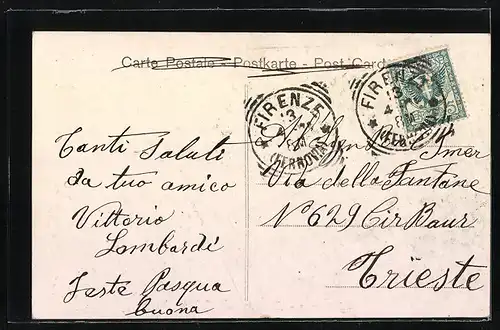 Carte Postale - Postkarte - Post Card
FIRENZE
13
(FERROVIA)
FIRENZE
13
4
(FERROVIA)
Tanti Saluti
da tuo amico
Vittorio
Lombardi
Feste Pasqua
buona
Imer
Via delle Fontane
N° 629 Cir Baur
Trieste